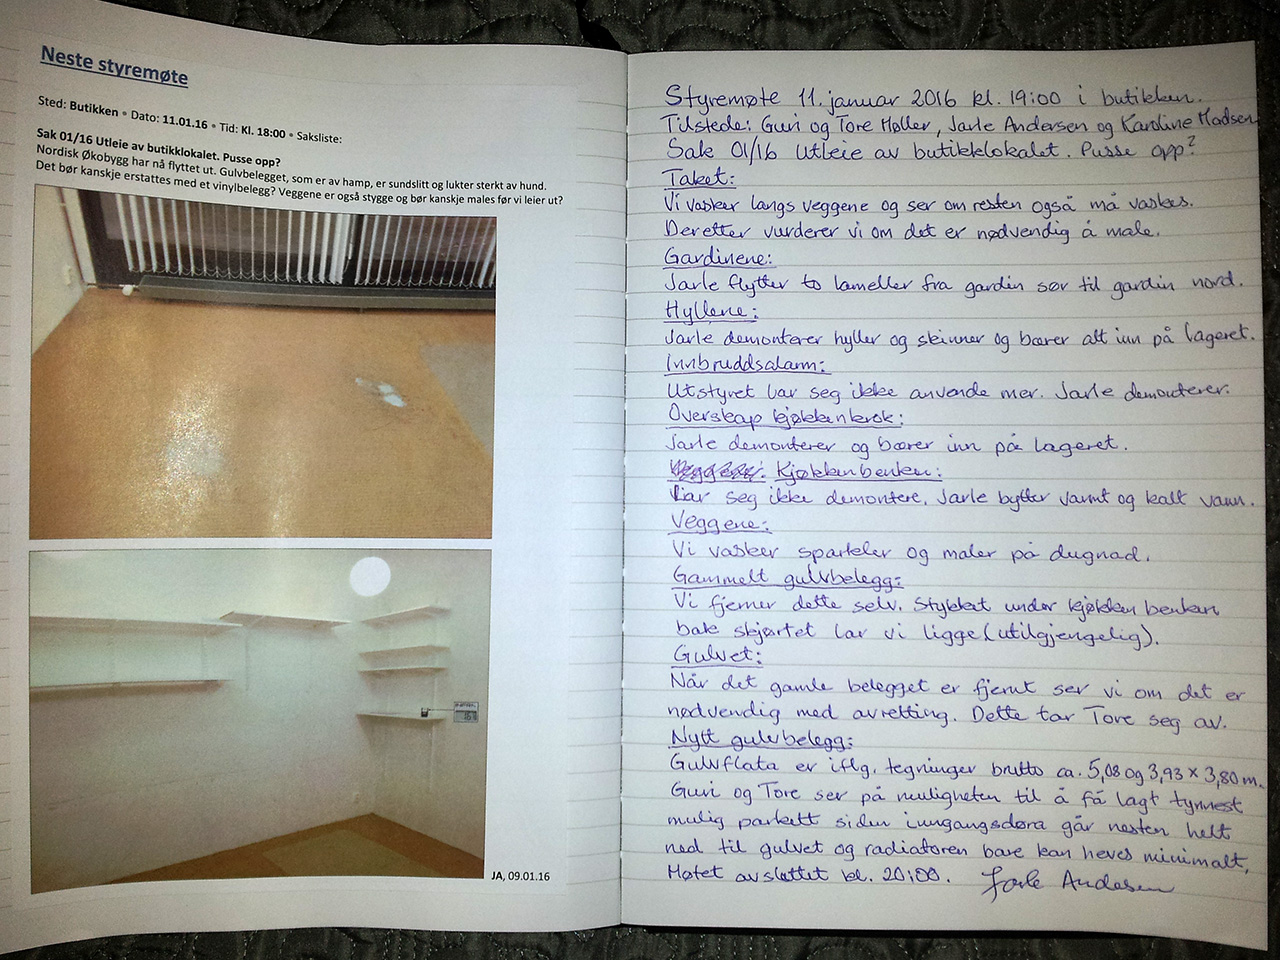 Neste styremøte
Sted: Butikken • Dato: 11.01.16 • Tid: Kl. 18:00 • Saksliste:
Sak 01/16 Utleie av butikklokalet. Pusse opp?
Nordisk Økobygg har nå flyttet ut. Gulvbelegget, som er av hamp, er sundslitt og lukter sterkt av hund.
Det bør kanskje erstattes med et vinylbelegg? Veggene er også stygge og bør kanskje males før vi leier ut?
JA, 09.01.16
Styremøte 11. januar 2016 kl. 19:00 i butikken.
Tilstede: Guri og Tore Møller, Jarle Andersen og Karoline Madsen
Sak 01/16 Utleie av butikklokalet. Pusse opp?
Taket:
Vi vasker langs veggene og ser om resten også må vaskes.
Deretter vurderer vi om det er nødvendig å male.
Gardinene:
Jarle flytter to lameller fra gardin sør til gardin nord.
Hyllene:
Jarle demonterer hyller og skinner og bærer alt inn på lageret.
Innbruddsalarm:
Utstyret lar seg ikke anvende mer. Jarle demonterer.
Overskap kjøkkenkrok:
Jarle demonterer og bærer inn på lageret.
Kjøkkenbenken:
Lar seg ikke demontere. Jarle bytter varmt og kalt vann.
Veggene:
Vi vasker sparkler og maler på dugnad.
Gammelt gulvbelegg:
Vi fjerner dette selv. Stykket under kjøkkenbenken
bak skjørtet lar vi ligge (utilgjengelig).
Gulvet:
Når det gamle belegget er fjernt ser vi om det er
nødvendig med avretting. Dette tar Tore seg av.
Nytt gulvbelegg:
Gulvflata er iflg. tegninger brutto ca. 5,08 og 3,93 x 3,80 m.
Guri og Tore ser på muligheten til å få lagt tynnest
mulig parkett siden inngangsdøra går nesten helt
ned til gulvet og radiatoren bare kan heves minimalt.
Møtet avsluttet kl. 20:00. Jarle Andersen